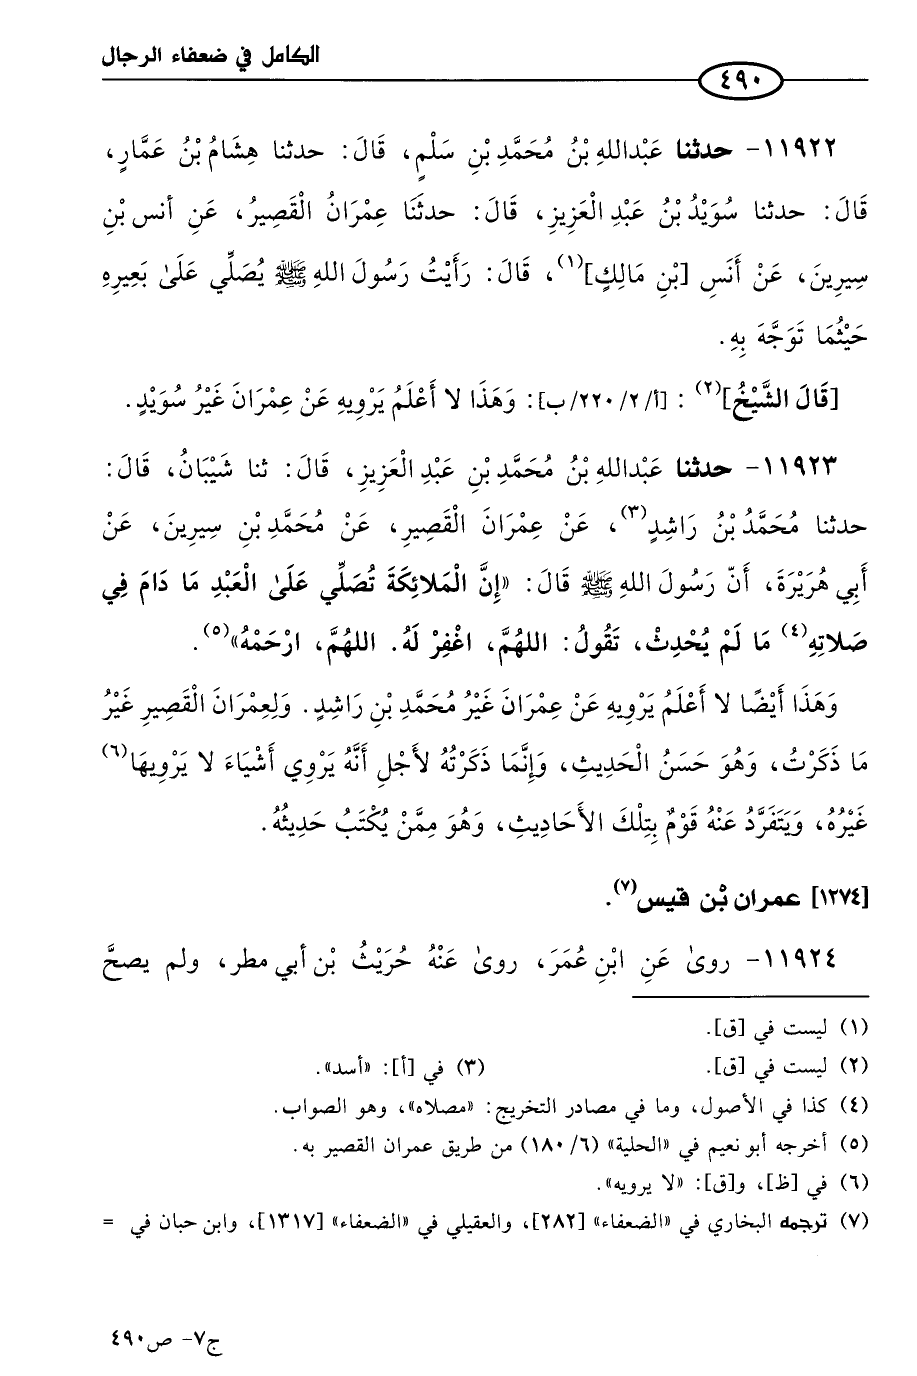 الكامل في ضعفاء الرجال
٤٩٠
١١٩٢٢- حدثنا عَبْداللهِ بْنُ مُحَمَّدِ بْنِ سَلْمٍ، قَالَ: حدثنا هِشَامُ بْنُ عَمَّارٍ،
قَالَ: حدثنا سُوَيْدُ بْنُ عَبْدِ الْعَزِيزِ، قَالَ: حدثَنَا عِمْرَانُ الْقَصِيرُ، عَنِ أنس بْنِ
سِيرِينَ، عَنْ أَنَسِ [بْنِ مَالِكٍ](١)، قَالَ: رَأَيْتُ رَسُولَ اللهِ ﷺ يُصَلِّي عَلَىٰ بَعِيرِهِ
حَيْثُمَا تَوَجَّهَ بِهِ.
[قَالَ الشَّيْخُ](٢) : [أ/٢/٢٢٠/ب]: وَهَذَا لا أَعْلَمُ يَرْوِيهِ عَنْ عِمْرَانَ غَيْرُ سُوَيْدٍ.
١١٩٢٣- حدثنا عَبْداللهِ بْنُ مُحَمَّدِ بْنِ عَبْدِ الْعَزِيزِ، قَالَ: ثنا شَيْبَانُ، قَالَ:
حدثنا مُحَمَّدُ بْنُ رَاشِدٍ(٣)، عَنْ عِمْرَانَ الْقَصِيرِ، عَنْ مُحَمَّدِ بْنِ سِيرِينَ، عَنْ
أَبِي هُرَيْرَةَ، أَنّ رَسُولَ اللهِ ﷺ قَالَ: «إِنَّ الْمَلائِكَةَ تُصَلِّي عَلَىٰ الْعَبْدِ مَا دَامَ فِي
صَلاتِهِ(٤) مَا لَمْ يُحْدِثْ، تَقُولُ: اللهُمَّ، اغْفِرْ لَهُ. اللهُمَّ، ارْحَمْهُ»(٥).
وَهَذَا أَيْضًا لا أَعْلَمُ يَرْوِيهِ عَنْ عِمْرَانَ غَيْرُ مُحَمَّدِ بْنِ رَاشِدٍ. وَلِعِمْرَانَ الْقَصِيرِ غَيْرُ
مَا ذَكَرْتُ، وَهُوَ حَسَنُ الْحَدِيثِ، وَإِنَّمَا ذَكَرْتُهُ لأَجْلِ أَنَّهُ يَرْوِي أَشْيَاءَ لا يَرْوِيهَا(٦)
غَيْرُهُ، وَيَتَفَرَّدُ عَنْهُ قَوْمٌ بِتِلْكَ الأَحَادِيثِ، وَهُوَ مِمَّنْ يُكْتَبُ حَدِيثُهُ.
[١٢٧٤] عمران بْن قيس(٧).
١١٩٢٤- روىٰ عَنِ ابْنِ عُمَرَ، روىٰ عَنْهُ حُرَيْثُ بْن أبي مطر، ولم يصحَّ
(١) ليست في [ق].
(٢) ليست في [ق]. (٣) في [أ]: «أسد».
(٤) كذا في الأصول، وما في مصادر التخريج: «مصلاه»، وهو الصواب.
(٥) أخرجه أبو نعيم في «الحلية» (٦/ ١٨٠) من طريق عمران القصير به.
(٦) في [ظ]، و[ق]: «لا يرويه».
(٧) ترجمه البخاري في «الضعفاء» [٢٨٢]، والعقيلي في «الضعفاء» [١٣١٧]، وابن حبان في =
ج٧- ص٤٩٠